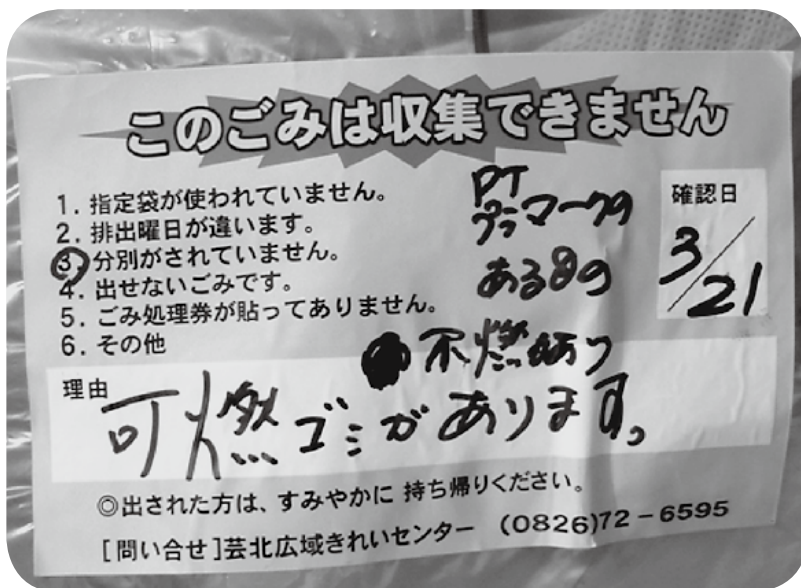 このごみは収集できません
1. 指定袋が使われていません。
2. 排出曜日が違います。
3. 分別がされていません。
4. 出せないごみです。
5. ごみ処理券が貼ってありません。
6. その他
プラマークの
ある
不燃あり
確認日
3/21
理由
可燃ゴミがあります。
◎出された方は、すみやかに 持ち帰りください。
[問い合せ]芸北広域きれいセンター (0826)72-6595